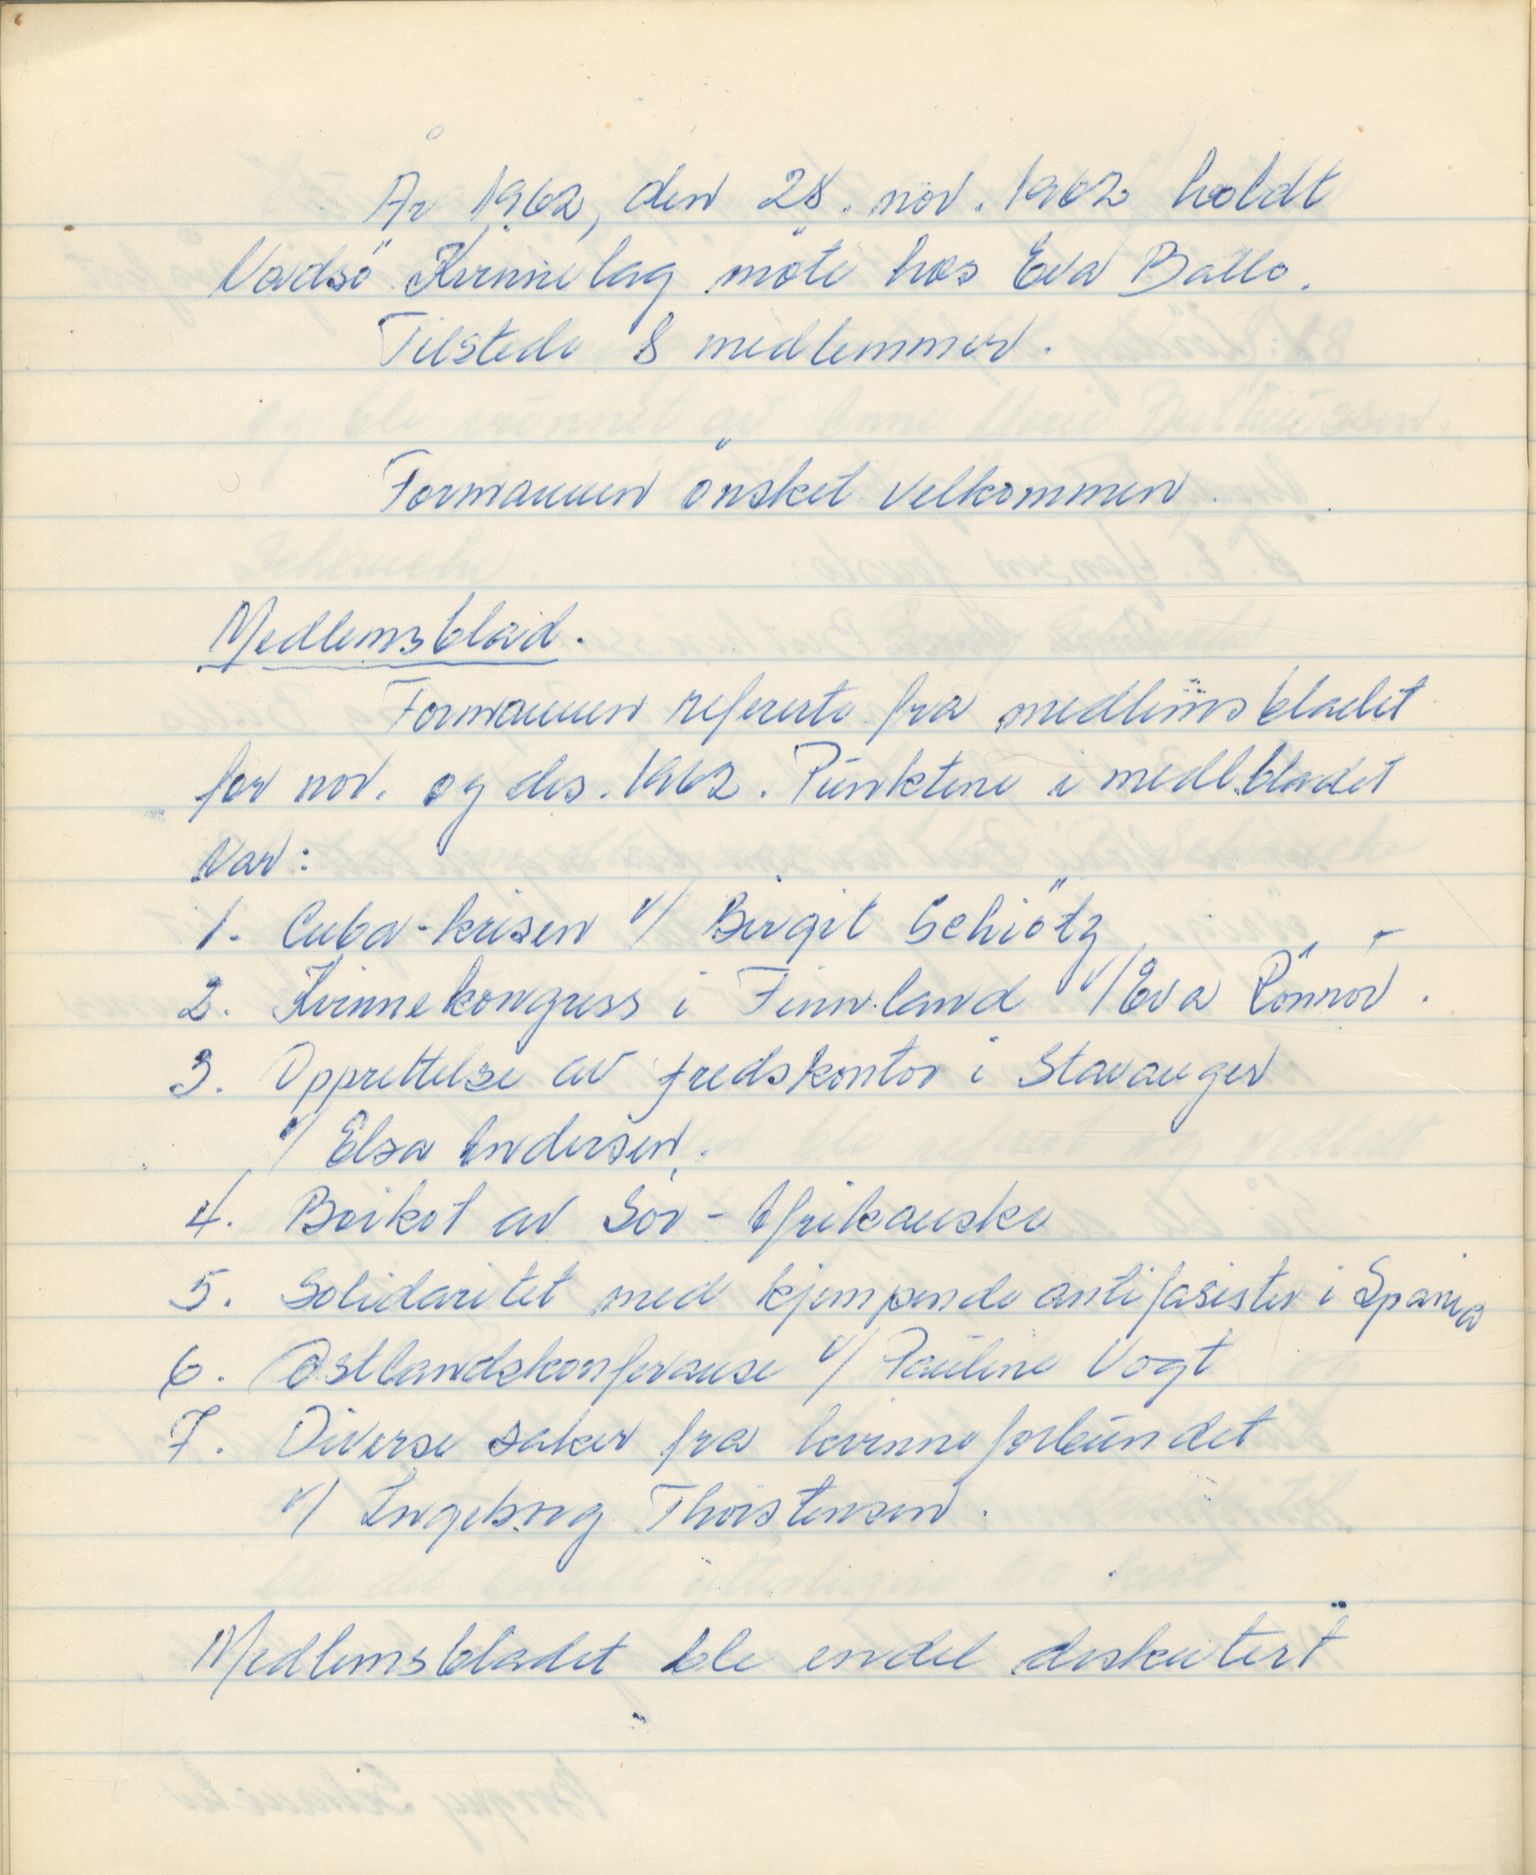 År 1962, den 28. nov. 1962 holdt
Vadsö Kvinnelag möte hos Eva Ballo.
Tilstede 8 medlemmer.
Formannen önsket velkommen.
Medlemsblad.
Formannen refererte fra medlemsbladet
for nov. og des. 1962. Punktene i medl.bladet
var:
1. Cuba-krisen v/ Birgit Schiötz
2. Kvinnekongress i Finnland v/ Eva Rönnov.
3. Opprettelse av fredskontor i Stavanger
v/ Elsa Andersen.
4. Boikot av Sör-Afrikanske
5. Solidaritet med kjempende antifasister i Spania
6. Østlandskonferanse v/ Pauline Vogt
7. Diverse saker fra kvinneforbundet
v/ Ingeborg Thorstensen.
Medlemsbladet ble endel diskutert